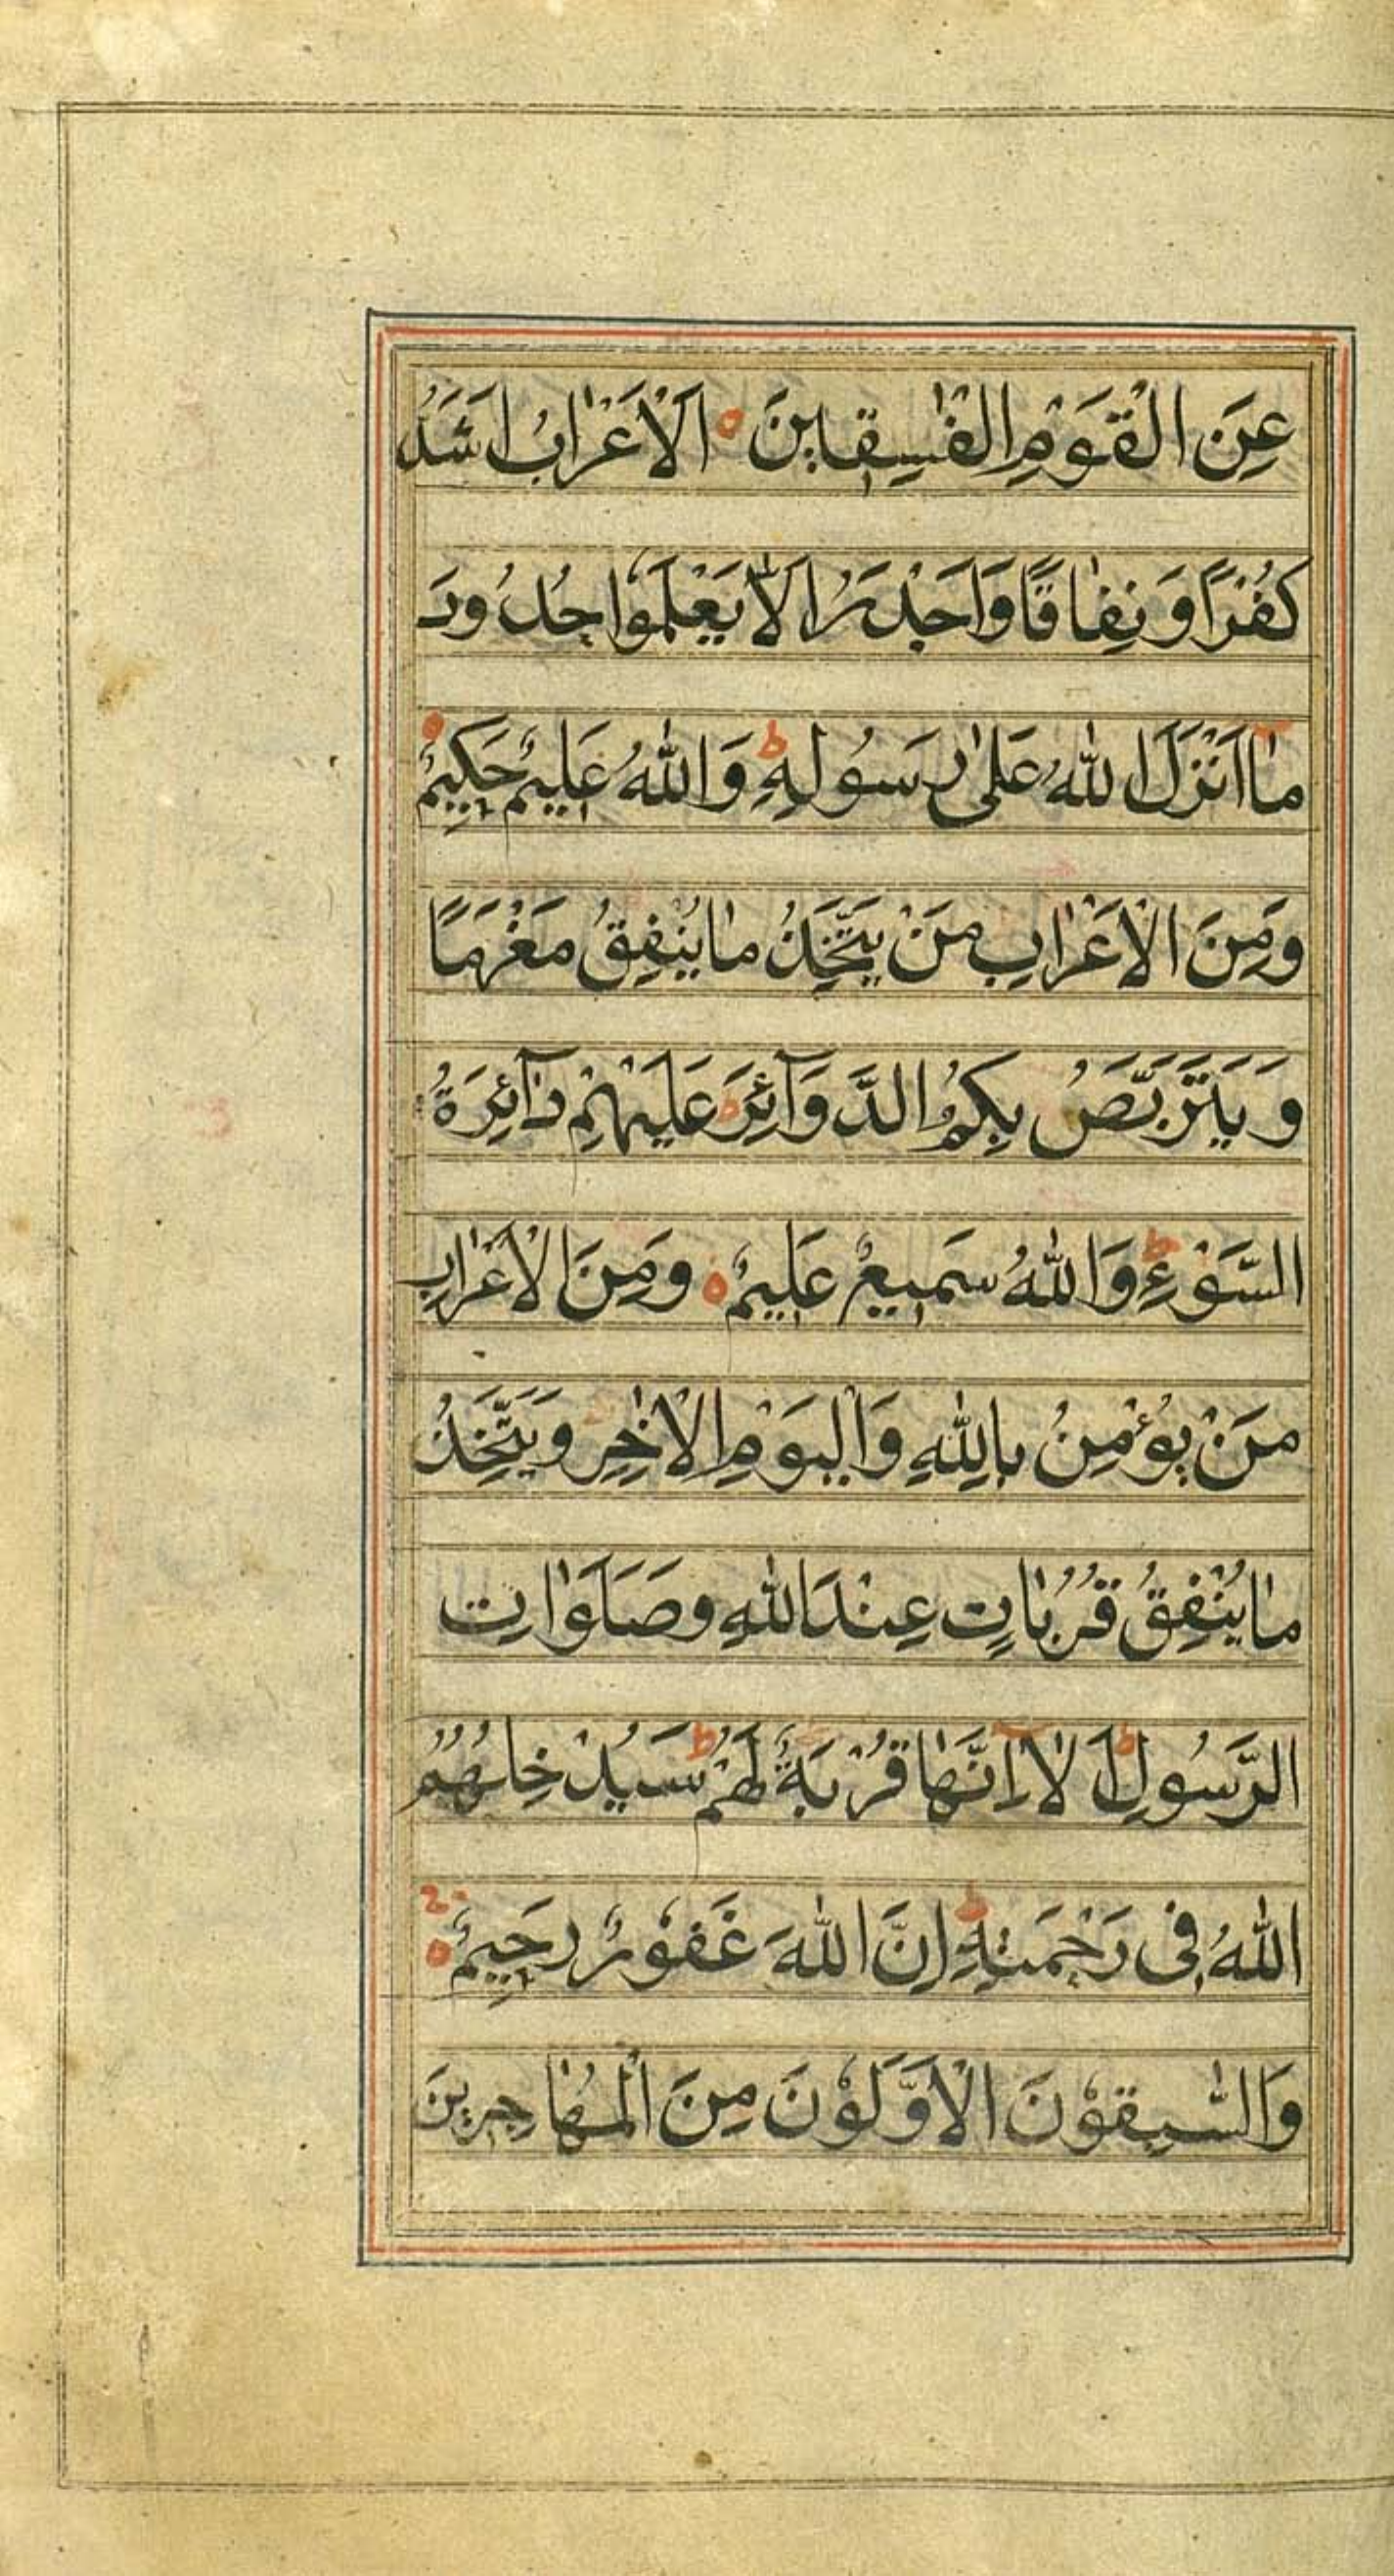 عَنِ الْقَوْمِ الْفٰسِقِينَ ۝ اَلْاَعْرَابُ اَشَدُّ
كُفْرًا وَنِفَاقًا وَاَجْدَرُ اَلَّا يَعْلَمُوا حُدُودَ
مَا اَنْزَلَ اللّٰهُ عَلٰى رَسُولِهِ ؕ وَاللّٰهُ عَلِيمٌ حَكِيمٌ ۝
وَمِنَ الْاَعْرَابِ مَنْ يَتَّخِذُ مَا يُنْفِقُ مَغْرَمًا
وَيَتَرَبَّصُ بِكُمُ الدَّوَآئِرَ ؕ عَلَيْهِمْ دَآئِرَةُ
السَّوْءِ ؕ وَاللّٰهُ سَمِيعٌ عَلِيمٌ ۝ وَمِنَ الْاَعْرَابِ
مَنْ يُؤْمِنُ بِاللّٰهِ وَالْيَوْمِ الْاٰخِرِ وَيَتَّخِذُ
مَا يُنْفِقُ قُرُبَاتٍ عِنْدَ اللّٰهِ وَصَلَوَاتِ
الرَّسُولِ ؕ اَلَا اِنَّهَا قُرْبَةٌ لَهُمْ ؕ سَيُدْخِلُهُمُ
اللّٰهُ فِى رَحْمَتِهِ ؕ اِنَّ اللّٰهَ غَفُوْرٌ رَحِيمٌ ۝
وَالسّٰبِقُوْنَ الْاَوَّلُوْنَ مِنَ الْمُهَاجِرِينَ